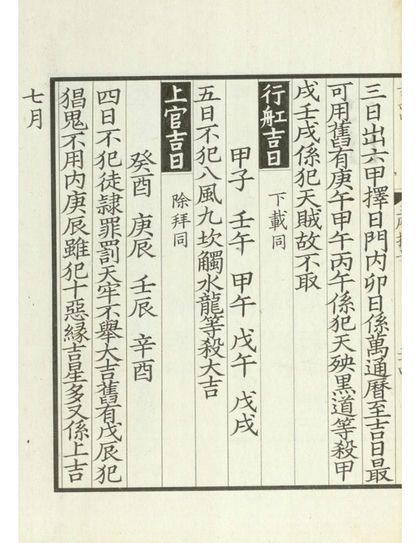 三日出六甲擇日門內卯日係萬通曆至吉日最
可用舊有庚午甲午丙午係犯天殃黑道等殺甲
戌壬戌係犯天賊故不取
行舡吉日 下載同
甲子 壬午 甲午 戊午 戊戌
五日不犯八風九坎觸水龍等殺大吉
上官吉日 除拜同
癸酉 庚辰 壬辰 辛酉
四日不犯徒隸罪罰天牢不舉大吉舊有戊辰犯
猖鬼不用內庚辰雖犯十惡緣吉星多又係上吉
七月